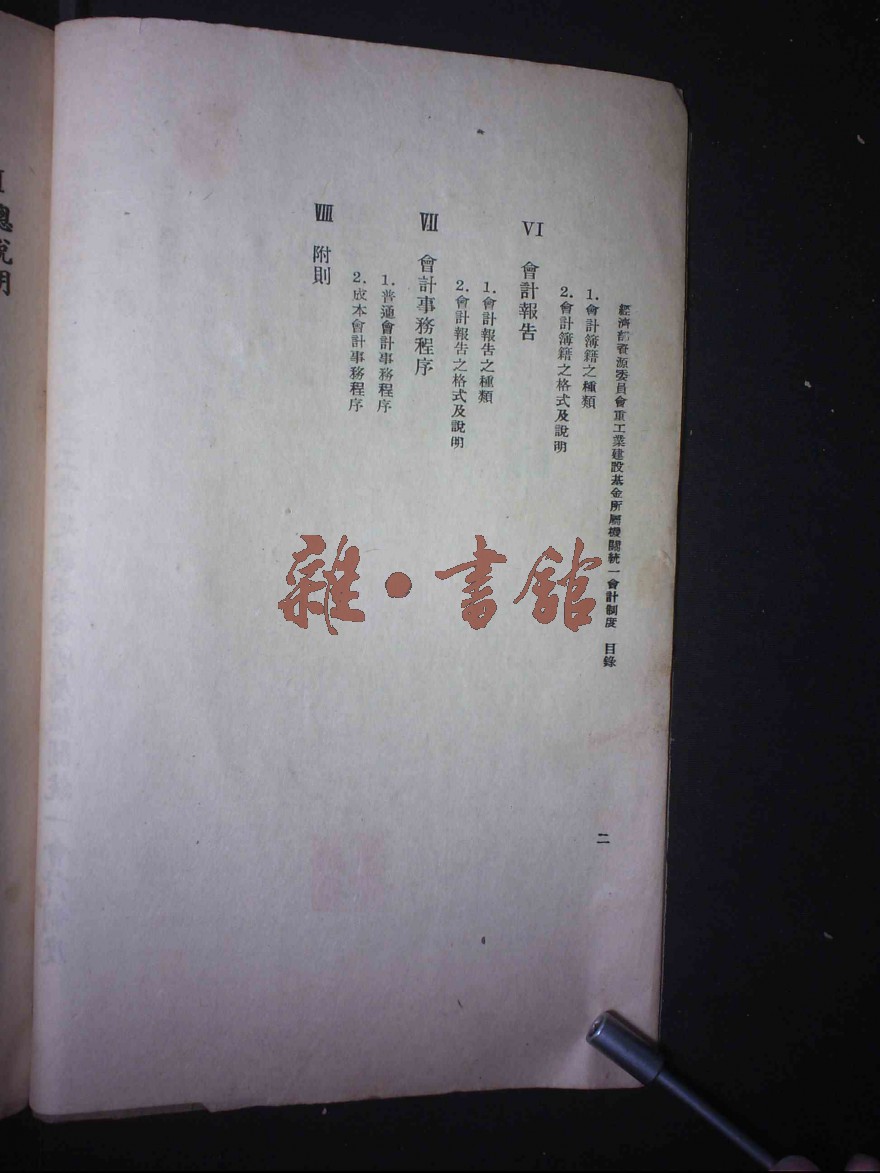 經濟部資源委員會重工業建設基金所屬機關統一會計制度 目錄
1. 會計簿籍之種類
2. 會計簿籍之格式及說明
VI 會計報告
1. 會計報告之種類
2. 會計報告之格式及說明
VII 會計事務程序
1. 普通會計事務程序
2. 成本會計事務程序
VIII 附則
二
雜·書館
總說明